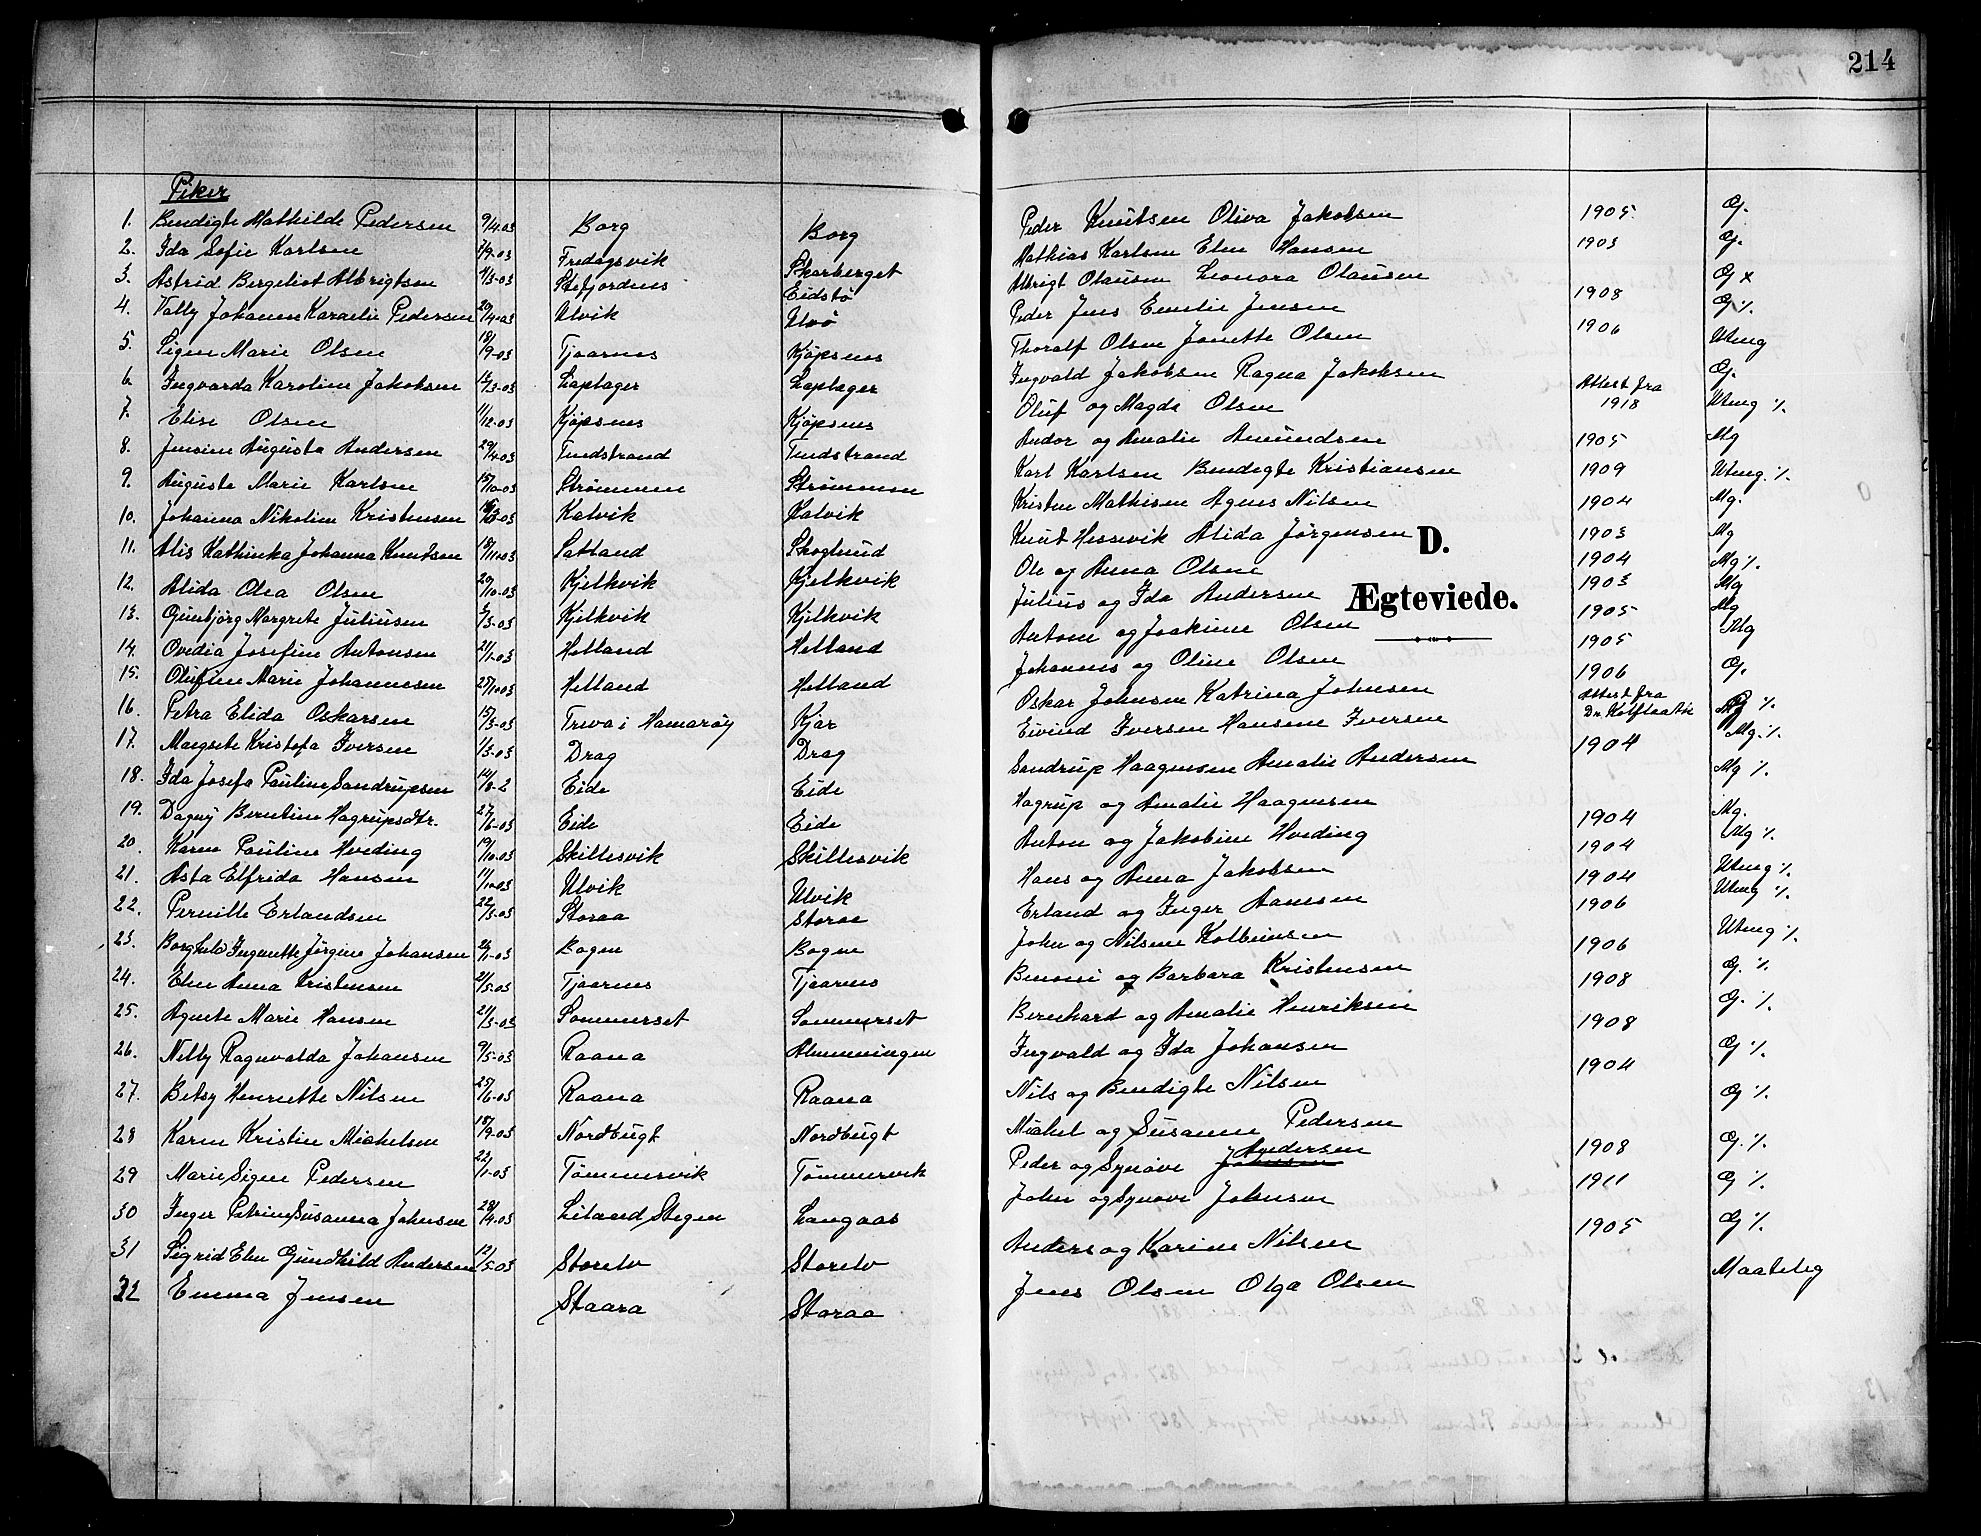 214
Piker
1. Bendigte Mathilde Pedersen 9/4.03 Borg Borg Peder Knutsen Oliva Jakobsen 1905 G.
2. Ida Sofie Karlsen 7/9-03 Fredagsvik Skarberget Mathias Karlsen Elen Hansen 1903 G.
3. Astrid Bergeliot Albrigtsen 4/3-03 Stefjordnes Eidstø Albrigt Olausen Leonora Olausen G x
4. Vally Johanna Karnelie Pedersen 20/4-03 Ulvik Ulvö Peder Jens Emelie Jensen 1908 G %
5. Signe Marie Olsen 18/9-03 Tjaarnes Kjøpsnes Thoralf Olsen Janette Olsen 1906 Uteng
6 Ingvarda Karoline Jakobsen 12/3-03 Laplager Laplager Ingvald Jakobsen Ragna Jakobsen G.
7. Elise Olsen 11/12-03 Kjøpsnes Kjøpsnes Oluf og Magda Olsen Attest fra 1918 Uteng %
8. Jensine Augusta Andersen 29/4.03 Tundstrand Tundstrand Andor og Amalie Amundsen 1905 Mg
9. Auguste Marie Karlsen 15/10-03 Strømmen Strømmen Karl Karlsen Bendigte Kristiansen 1909 Uteng. %
10. Johanna Nikoline Kristensen Kalvik Kalvik Kristen Mathisen Agnes Nilsen 1904 Mg.
11. Alis Kathinka Johanna Knutsen 18/11.03 Satland Skoglund Knut Hessevik Alida Jørgensen 1903 Mg
D.
12. Alida Olea Olsen 20/10-03 Kjelkvik Kjelkvik Ole og Anna Olsen 1904 Mg %
13. Gunbjörg Margrete Juliusen 2/3-03 Kjelkvik Kjelkvik Julius og Ida Andersen 1903 Mg
Ægteviede.
14. Ovedia Josefine Antonsen 21/1-03 Helland Helland Antone og Joakime Olsen 1905 Mg
15. Olufine Marie Johannesen 25/10.03 Helland Helland Johannes og Oline Olsen 1905 Mg
16. Petra Elida Oskarsen 15/3-03 Treva i Hamarøy Kjær Oskar Johnsen Katrina Johnsen 1906 G.
17. Margrete Kristofa Iversen 1/3-03 Drag Drag Eivind Iversen Hansine Iversen Attest fra Dr. %
18. Ida Josefa Pauline Sandrupsen 14/8-2 Eide Eide Sandrup Haagensen Amalie Andersen 1904 Mg. %
19. Dagny Berntine Hagrupsdtr. 27/6-03 Eide Eide Hagrup og Amalie Haagensen Mg %
20. Karen Pauline Hveding 19/10.03 Skillesvik Skillesvik Anton og Jakobine Hveding 1904 Mg.
21. Asta Elfrida Hansen 11/10-03 Ulvik Ulvik Hans og Anna Jakobsen 1904 Mg %
22. Pernille Erlandsen 22/3-03 Storaa Storaa Erland og Inger Hansen 1904 Uteng %
23. Borghild Ingenette Jørgine Johansen 26/1-03 Bogen Bogen John og Nilsine Kolbeinsen 1906 Uteng %
24. Elen Anna Kristensen 21/5.03 Tjaarnes Tjaarnes Benoni og Barbara Kristensen 1906 Uteng %
25. Agnete Marie Hansen 21/3-03 Sommerset Sommerset Bernhard og Amalie Henriksen 1908 G. %
26. Nelly Ragnvalda Johansen 9/5-03 Raana Almenningen Ingvald og Ida Johansen 1908 G. %
27. Betsy Henriette Nilsen 25/6-03 Raana Raana Nils og Bendigte Nilsen 1904 G %
28 Karen Kristine Mickelsen 18/9-03 Nordbugt Nordbugt Mickel og Susanne Pedersen G %
29 Marie Signe Pedersen 22/1-03 Tømmersvik Tømmervik Peder og Synøve Andersen 1908 G. %
30 Inger Petrine Susanna Johnsen 28/4.03 Leiland, Stegen Langaas John og Synøve Johnsen 1911 G %
31 Sigrid Elen Gundhild Andersen 12/5.03 Storelv Storelv Anders og Karine Nilsen 1905 G %
32 Emma Jensen Staara Storaa Jens Olsen Olga Olsen Maatelig